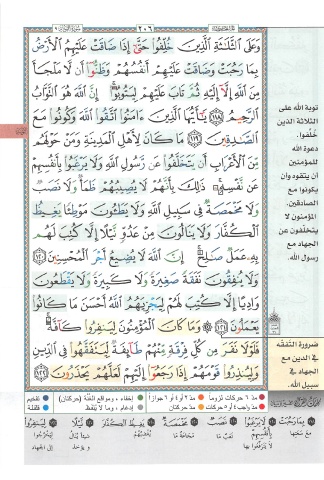 ٢٠٦
وَعَلَى ٱلثَّلَٰثَةِ ٱلَّذِينَ خُلِّفُوا۟ حَتَّىٰٓ إِذَا ضَاقَتْ عَلَيْهِمُ ٱلْأَرْضُ
بِمَا رَحُبَتْ وَضَاقَتْ عَلَيْهِمْ أَنفُسُهُمْ وَظَنُّوٓا۟ أَن لَّا مَلْجَأَ
مِنَ ٱللَّهِ إِلَّآ إِلَيْهِ ثُمَّ تَابَ عَلَيْهِمْ لِيَتُوبُوٓا۟ ۚ إِنَّ ٱللَّهَ هُوَ ٱلتَّوَّابُ
ٱلرَّحِيمُ ١١٨ يَٰٓأَيُّهَا ٱلَّذِينَ ءَامَنُوا۟ ٱتَّقُوا۟ ٱللَّهَ وَكُونُوا۟ مَعَ
ٱلصَّٰدِقِينَ ١١٩ مَا كَانَ لِأَهْلِ ٱلْمَدِينَةِ وَمَنْ حَوْلَهُم
مِّنَ ٱلْأَعْرَابِ أَن يَتَخَلَّفُوا۟ عَن رَّسُولِ ٱللَّهِ وَلَا يَرْغَبُوا۟ بِأَنفُسِهِمْ
عَن نَّفْسِهِۦ ۚ ذَٰلِكَ بِأَنَّهُمْ لَا يُصِيبُهُمْ ظَمَأٌ وَلَا نَصَبٌ
وَلَا مَخْمَصَةٌ فِى سَبِيلِ ٱللَّهِ وَلَا يَطَـُٔونَ مَوْطِئًا يَغِيظُ
ٱلْكُفَّارَ وَلَا يَنَالُونَ مِنْ عَدُوٍّ نَّيْلًا إِلَّا كُتِبَ لَهُم
بِهِۦ عَمَلٌ صَٰلِحٌ ۚ إِنَّ ٱللَّهَ لَا يُضِيعُ أَجْرَ ٱلْمُحْسِنِينَ ١٢٠
وَلَا يُنفِقُونَ نَفَقَةً صَغِيرَةً وَلَا كَبِيرَةً وَلَا يَقْطَعُونَ
وَادِيًا إِلَّا كُتِبَ لَهُمْ لِيَجْزِيَهُمُ ٱللَّهُ أَحْسَنَ مَا كَانُوا۟
يَعْمَلُونَ ١٢١ ۞ وَمَا كَانَ ٱلْمُؤْمِنُونَ لِيَنفِرُوا۟ كَآفَّةً ۚ
فَلَوْلَا نَفَرَ مِن كُلِّ فِرْقَةٍ مِّنْهُمْ طَآئِفَةٌ لِّيَتَفَقَّهُوا۟ فِى ٱلدِّينِ
وَلِيُنذِرُوا۟ قَوْمَهُمْ إِذَا رَجَعُوٓا۟ إِلَيْهِمْ لَعَلَّهُمْ يَحْذَرُونَ ١٢٢
توبة الله على
الثلاثة الذين
خُلِّفوا.
دعوة الله
المؤمنين
ان يتقوه وان
يكونوا مع
الصادقين.
المؤمنون لا
يتخلّفون عن
الجهاد مع
رسول الله.
ضرورة التفقّه
في الدين مع
الجهاد في
سبيل الله.
مدّ ٦ حركات لزوماً
مدّ ٢ أو ٤ أو ٦ جوازاً
إخفاء، ومواقع الغنّة (حركتان)
تفخيم
مدّ واجب ٤ أو ٥ حركات
مدّ حركتان
إدغام، وما لا يُلفَظ
قلقلة
بِمَا رَحُبَتْ
لَا يَرْغَبُوا۟ بِأَنفُسِهِمْ
نَصَبٌ
مَخْمَصَةٌ
يَغِيظُ ٱلْكُفَّارَ
نَيْلًا
لِيَنفِرُوا۟